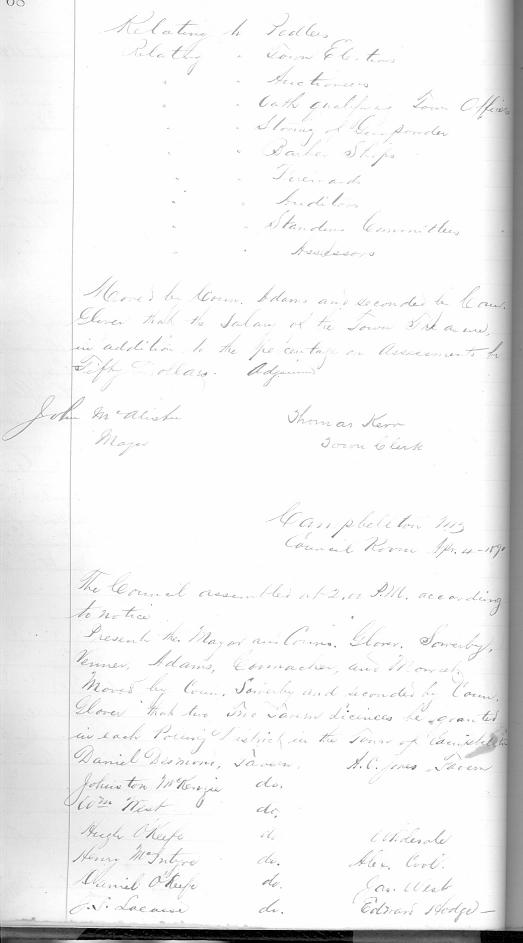 68
Relating to Pedlers
Relating " Town Elections
" " Auctioneers
" " Oath qualifying Town Officers
" " Storing of Gunpowder
" " Barber Shops
" " Firewards
" " Auditors
" " Standing Committees
" " Assessors
Moved by Coun. Adams and seconded by Coun.
Glover that the Salary of the Town Treasurer,
in addition to the percentage on Assessments be
Fifty Dollars. Adjourned
John McAlister Thomas Kerr
Mayor Town Clerk
Campbellton NB
Council Room Apr. 4 - 1890
The Council assembled at 2.00 P.M. according
to notice
Present the Mayor and Couns. Glover, Sowerby,
Venner, Adams, and Mowat.
Moved by Coun. Sowerby and seconded by Coun.
Glover that two Tavern licenses be granted
in each Polling District in the Town of Campbellton
Daniel Desmond, Tavern. A.C. Jones Tavern
Johnston McKenzie do.
Wm West do.
Hugh O'Keefe do. Wholesale
Henry McIntyre do. Alex.
Daniel O'Keefe do. Jas West
J.S. do. Edward Hodge -